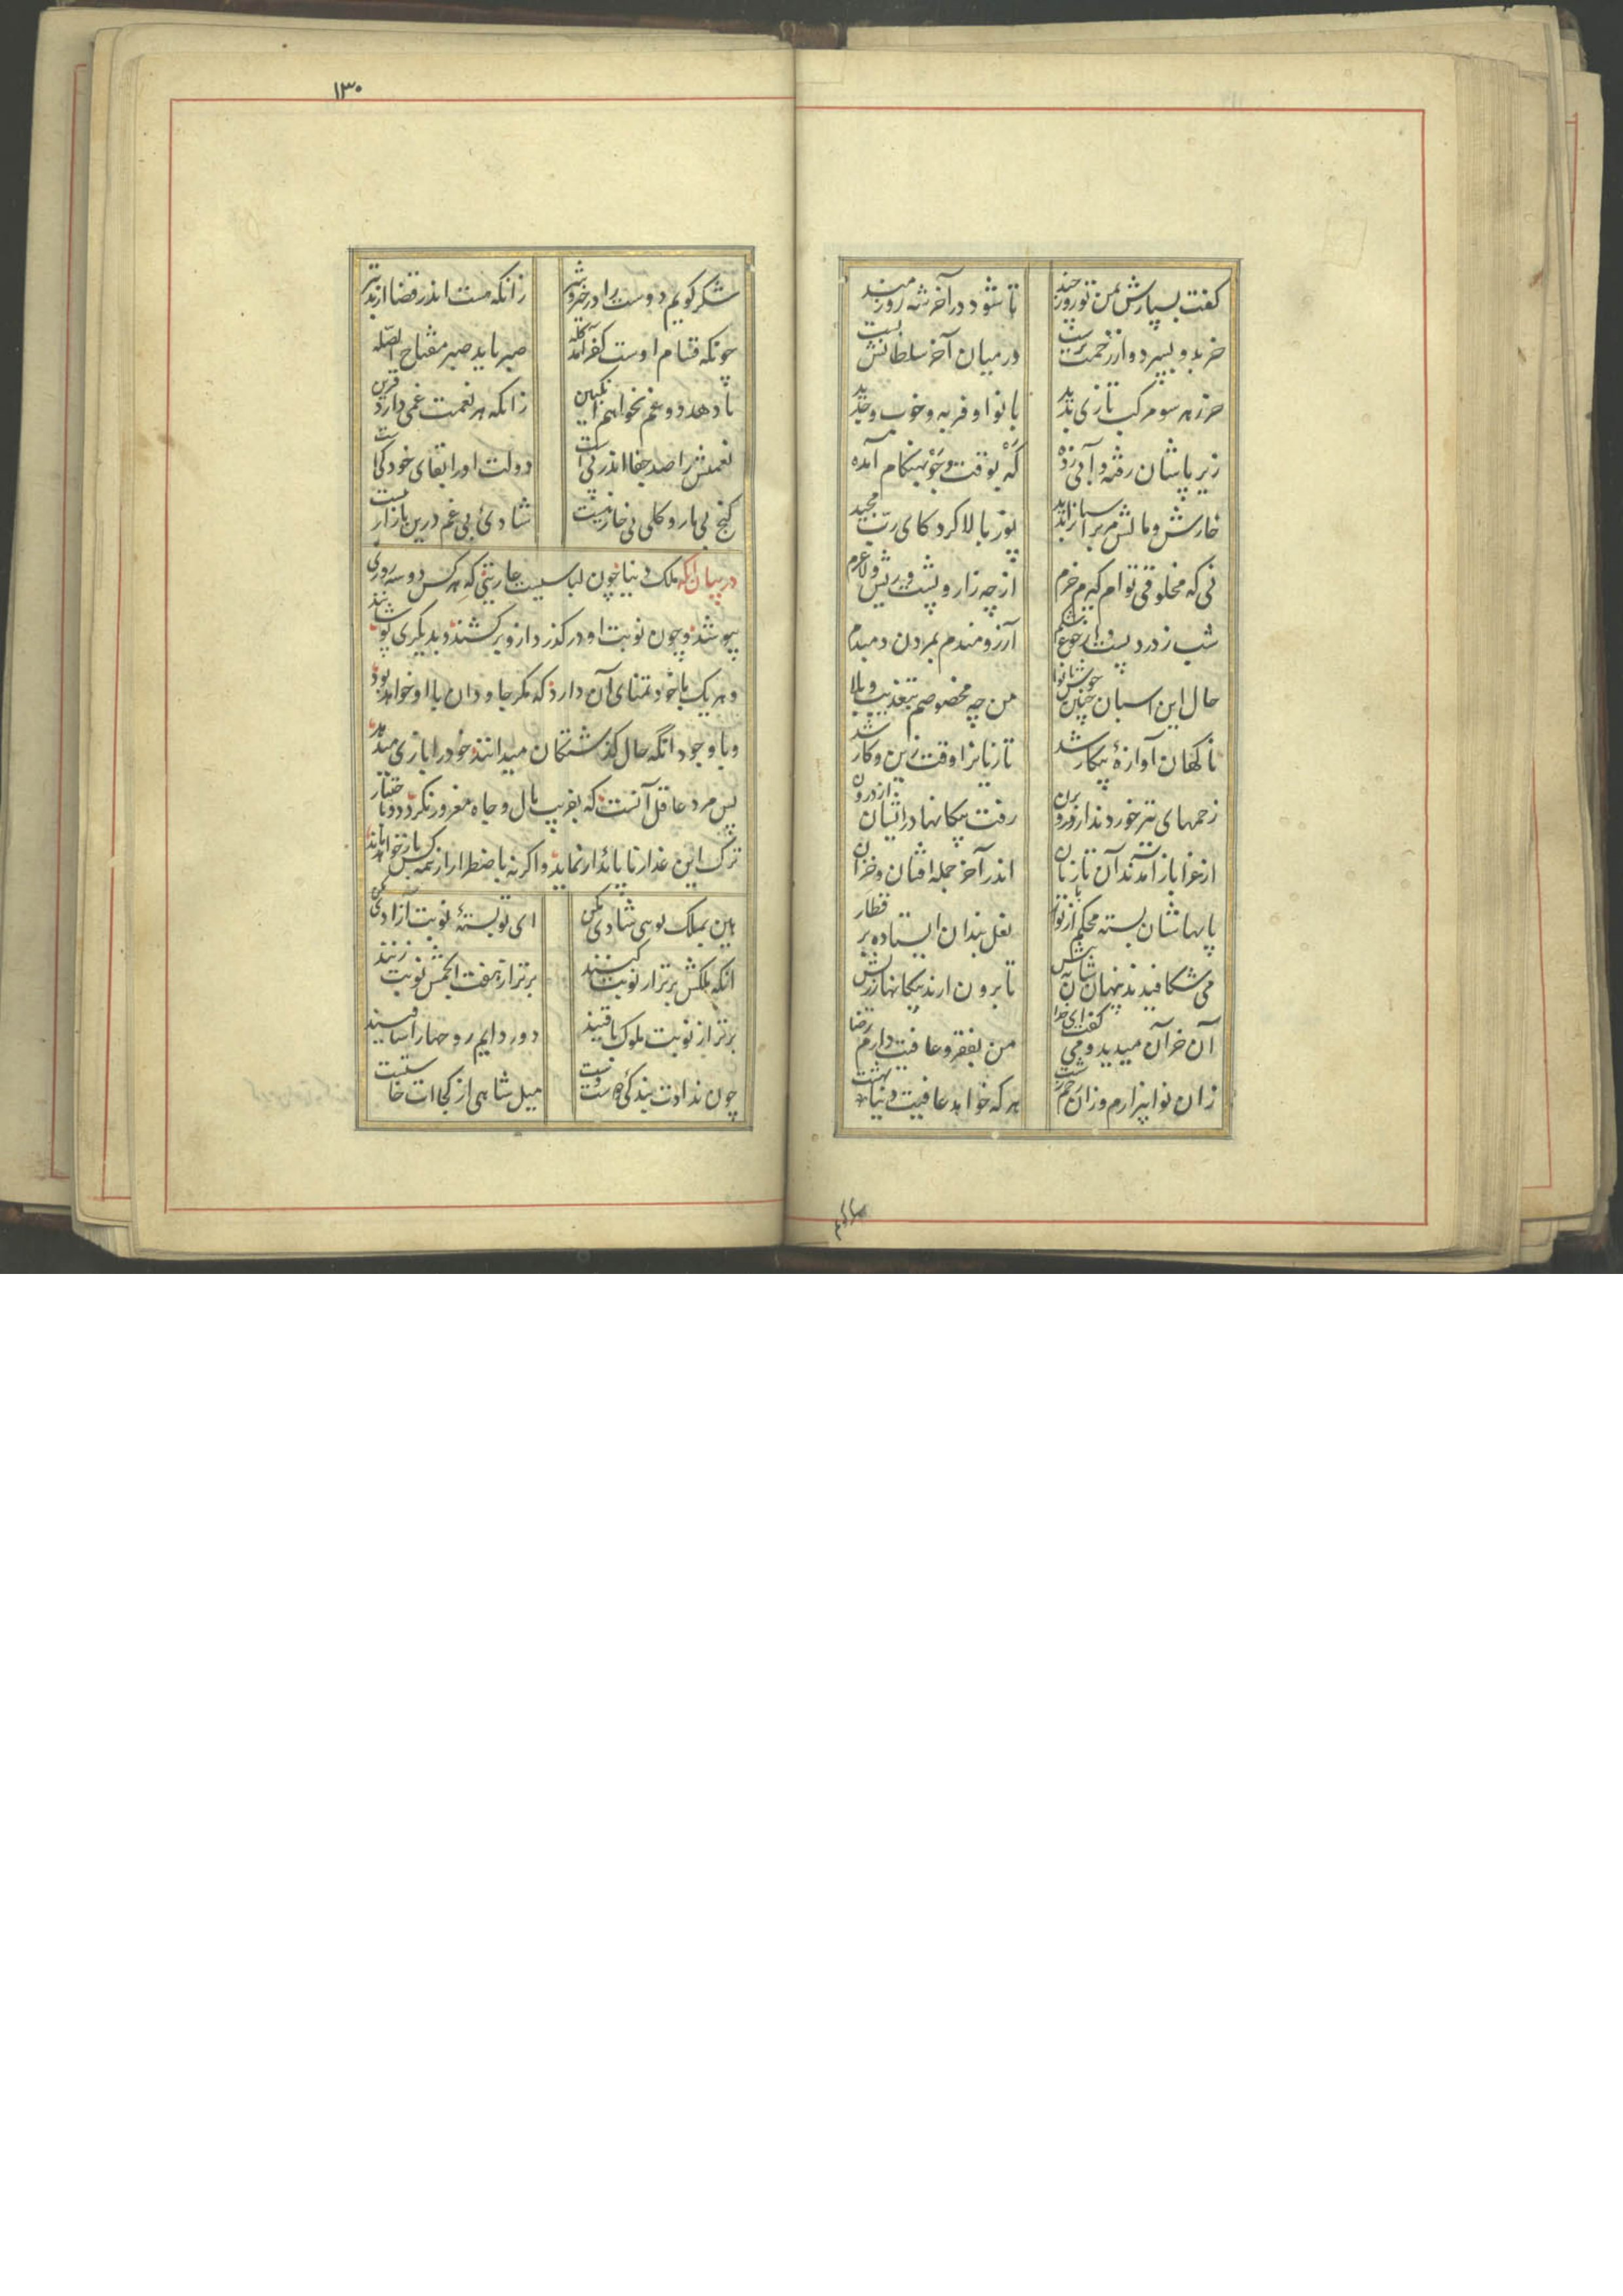 کفت بسپارش بمن تو روز چند
تا شود در آخر شه زورمند
خر بدو بسپرد و از زحمت برست
در میان آخر سلطانش بست
خر ز هر سو مرکب تازی بدید
با نوا و فربه و خوب و جدید
زیر پاشان رفته و آبی زده
که بوقت و جو بهنکام آمده
خارش و مالش مر اسبانرا بدید
پوز بالا کرد کای رب مجید
نی که مخلوق توام کیرم خرم
از چه زار و پشت ریش و لاغرم
شب ز درد پشت و از جوع شکم
آرزومندم بمردن دمبدم
حال این اسبان چنین خوش با نوا
من چه مخصوصم بتعذیب و بلا
ناکهان آوازهٔ پیکار شد
تازیانرا وقت زین و کار شد
زخمهای تیر خوردند از برون
رفت پیکانها در ایشان از درون
از غزا باز آمدند آن تازیان
اندر آخر جمله افتان و خزان
پایهاشان بسته محکم از نوار
نعل بندان ایستاده بر قطار
می شکافیدند تنهاشان به نیش
تا برون آرند پیکانها ز ریش
آن خر آن میدید و می کفت ای خدا
من بفقر و عافیت دارم رضا
زان نوا بیزارم و زان زخم زشت
هر که خواهد عافیت دنیا بهشت
۱۳۰
شکر کویم دوست را در خیر و شر
زانکه هست اندر قضا از بد بتر
چونکه قسام اوست کفر آمد کله
صبر باید صبر مفتاح الصله
تا دهد دوغم نخواهم انکبین
زانکه هر نعمت غمی دارد قرین
نعمتش را صد جفا اندر پی است
دولت او را بقای خود کی است
کنج بی مار و کلی بی خار نیست
شادئ بی غم درین بازار نیست
در بیان آنکه ملک دنیا چون لباسیست عاریتی که هر کس دو سه روزی
بپوشد و چون نوبت او درکذرد ازو برکشند و بدیکری پوشانند
و هر یک با خود تمنای آن دارد که مکر جاودان با او خواهد بود
و با وجود آنکه حال کذشتکان میدانند خود را بازی میدهد
پس مرد عاقل آنست که بفریب مال و جاه مغرور نکردد و باختیار
ترک این غدار ناپائدار نماید و اکرنه باضطرار از همه کس باز خواهد ماند
هین بملک نوبتی شادی مکن
ای تو بستهٔ نوبت آزادی مکن
آنکه ملکش برتر از نوبت کنند
برتر از هفت انجمش نوبت زنند
برتر از نوبت ملوک باقیند
دور دایم روحها را ساقیند
چون ندادت بندکئ دوست دست
میل شاهی از کجا ات خاستست